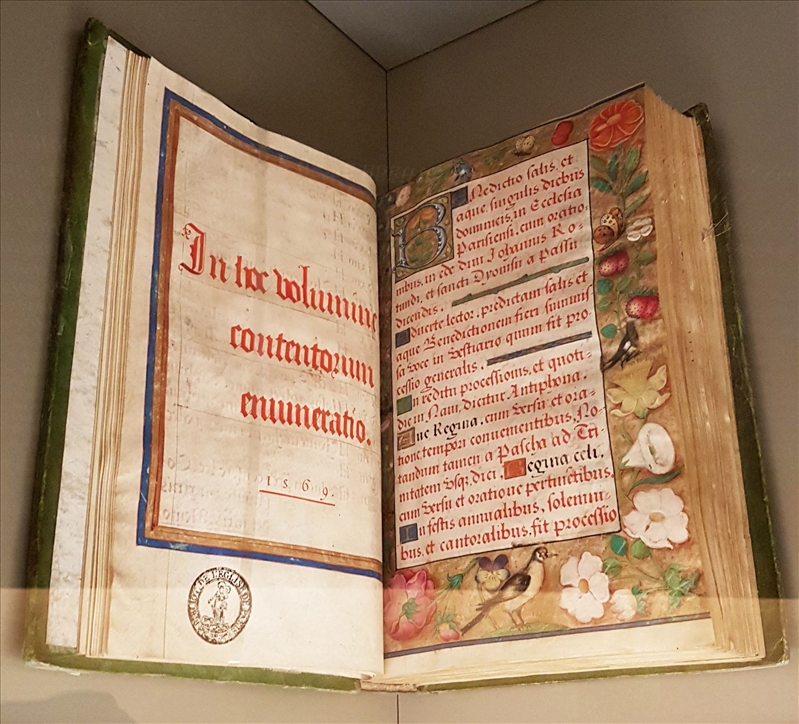 In hoc volumine
contentorum
enumeratio.
1569.
BENedictio salis, et
aque, singulis diebus
dominicis, in Ecclesia
Parisiensi, cum oratio
nibus, in ede divi Johannis Ro-
tundi, et sancti Dyonisii a Passu
dicendis.
Aduerte lector, predictam salis et
aque Benedictionem fieri summis
sa voce in vestiario quum fit pro-
cessio generalis.
In reditu processionis, et quoti-
die in Navi, dicitur Antiphona,
Aue Regina, cum versu et ora-
tione tempori conuenientibus. No-
tandum tamen a Pascha ad Tri-
nitatem vsq; dici, Regina celi,
cum versu et oratione pertinētibus.
In festis annualibus, solenni-
bus, et cantoralibus, fit processio